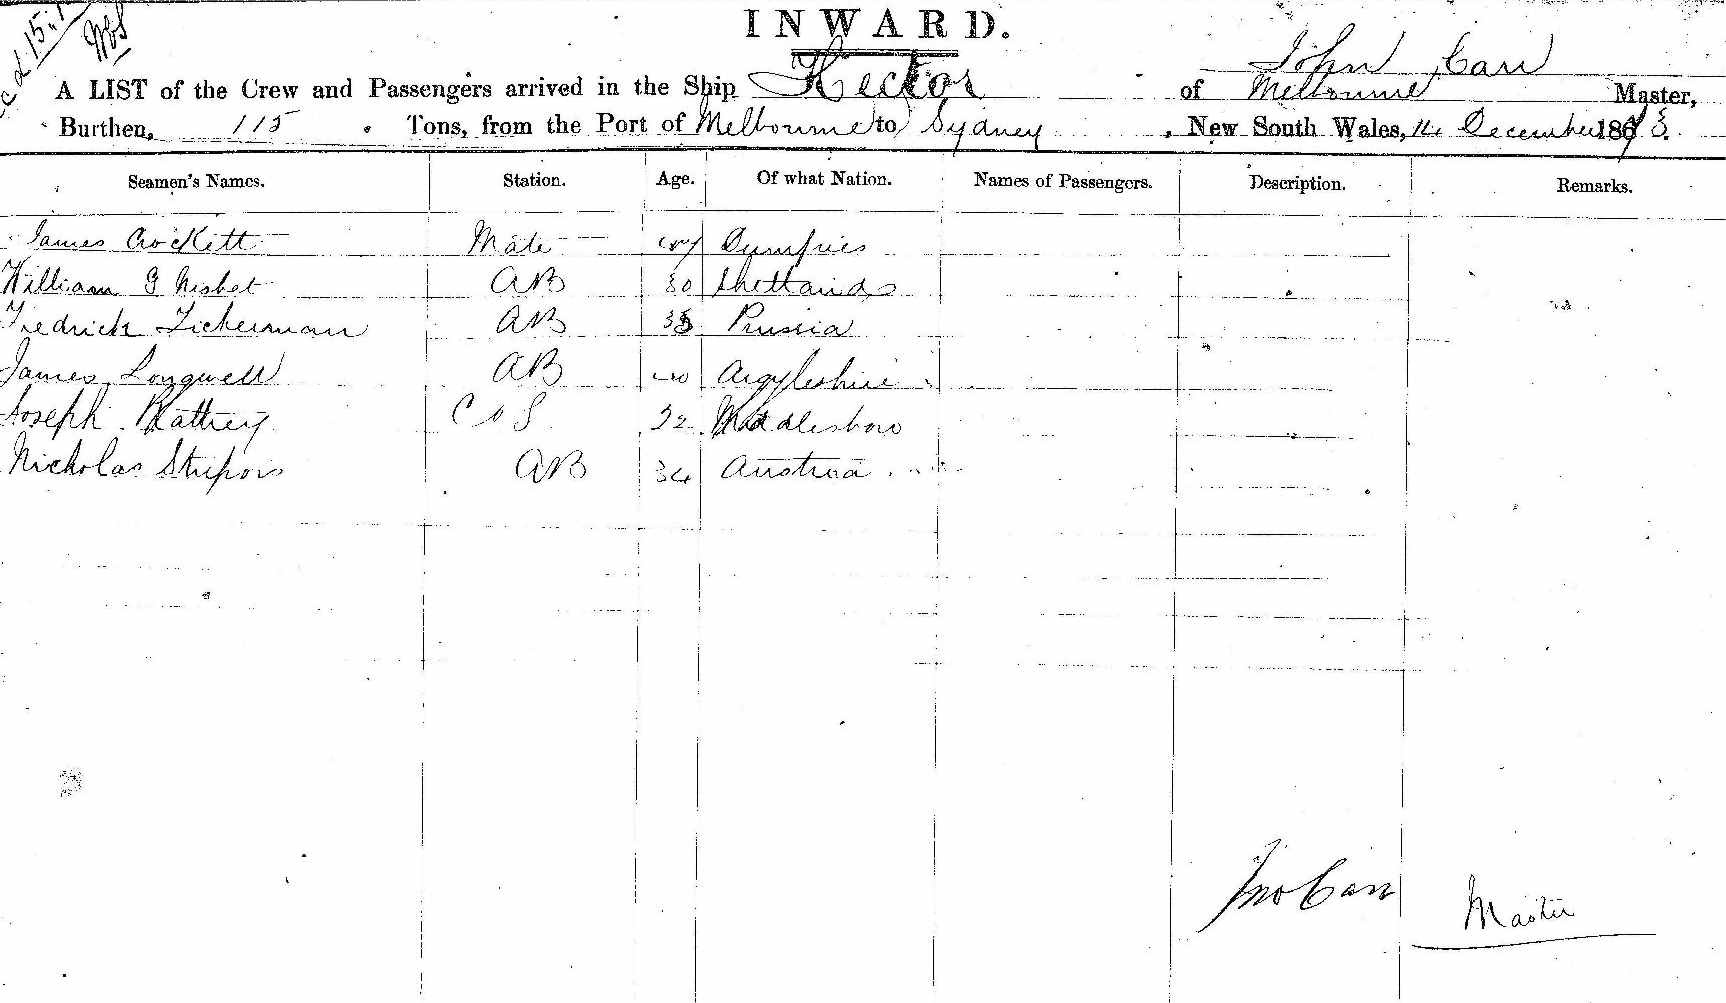 INWARD.
John Carr
A LIST of the Crew and Passengers arrived in the Ship Hector of Melbourne Master,
Burthen, 115 Tons, from the Port of Melbourne to Sydney, New South Wales, 14 December 1873.
Seamen's Names. Station. Age. Of what Nation. Names of Passengers. Description. Remarks.
James Crockett Mate Dumfries
William G Nisbet AB 30 Shetlands
Fredrick Zickerman AB Prussia
James Longwell AB Argyleshire
Joseph Rattrey C & S 32 Middlesboro
Nickolas AB 34 Austria
Jno Carr Master